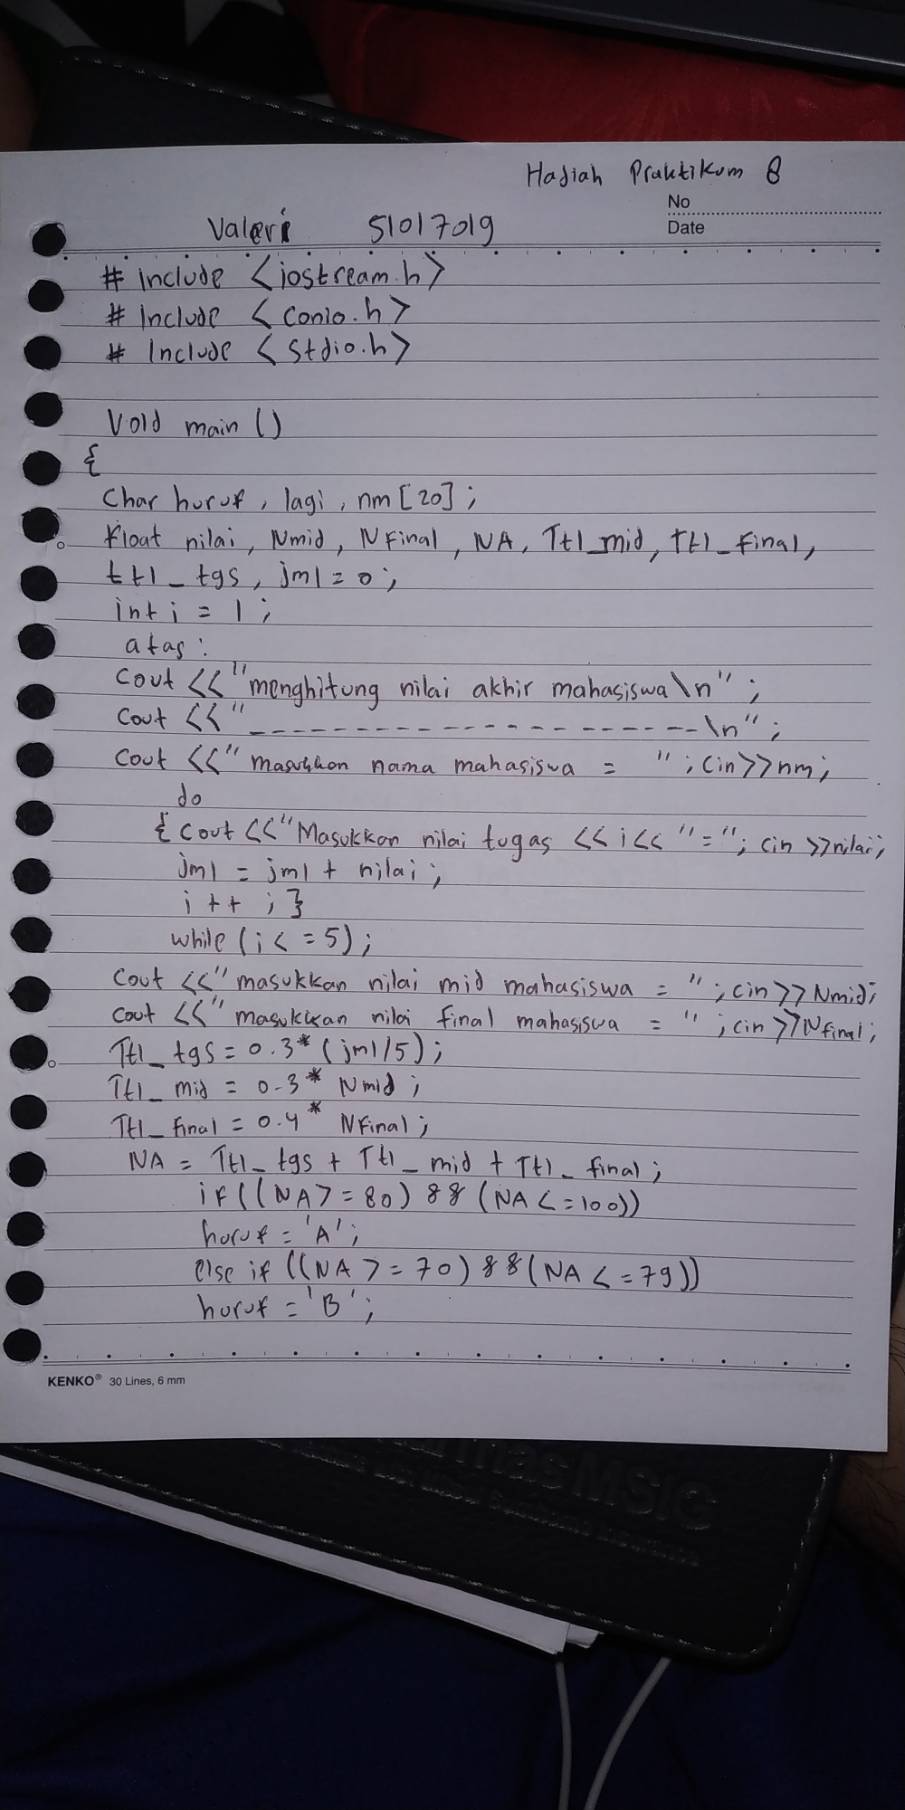 Hadiah Praktikum 8
No
Date
Valeri 51017019
# include <iostream.h>
# include <conio.h>
# include <stdio.h>
Void main ()
{
Char huruf, lagi, nm [20];
float nilai, Nmid, NFinal, NA, Ttl_mid, ttl_final,
ttl_tgs, jml = 0;
int i = 1;
atas:
Cout <<"menghitung nilai akhir mahasiswa\n";
Cout <<"----------------------\n";
Cout <<"masukkan nama mahasiswa = "; Cin>>nm;
do
{ Cout <<"Masukkan nilai tugas <<i<< "="; cin >>nilai;
jml = jml + nilai;
i++ ; }
while (i <= 5);
Cout <<"masukkan nilai mid mahasiswa = "; cin>>Nmid;
Cout <<"masukkan nilai final mahasiswa = "; cin>>Nfinal;
Ttl_tgs = 0.3* (jml/5);
Ttl_mid = 0.3* Nmid;
Ttl_final = 0.4* NFinal;
NA = Ttl_tgs + Ttl_mid + Ttl_final;
if ((NA >= 80) && (NA <= 100))
huruf = 'A';
else if ((NA >= 70) && (NA <= 79))
huruf = 'B';
KENKO® 30 Lines, 6 mm